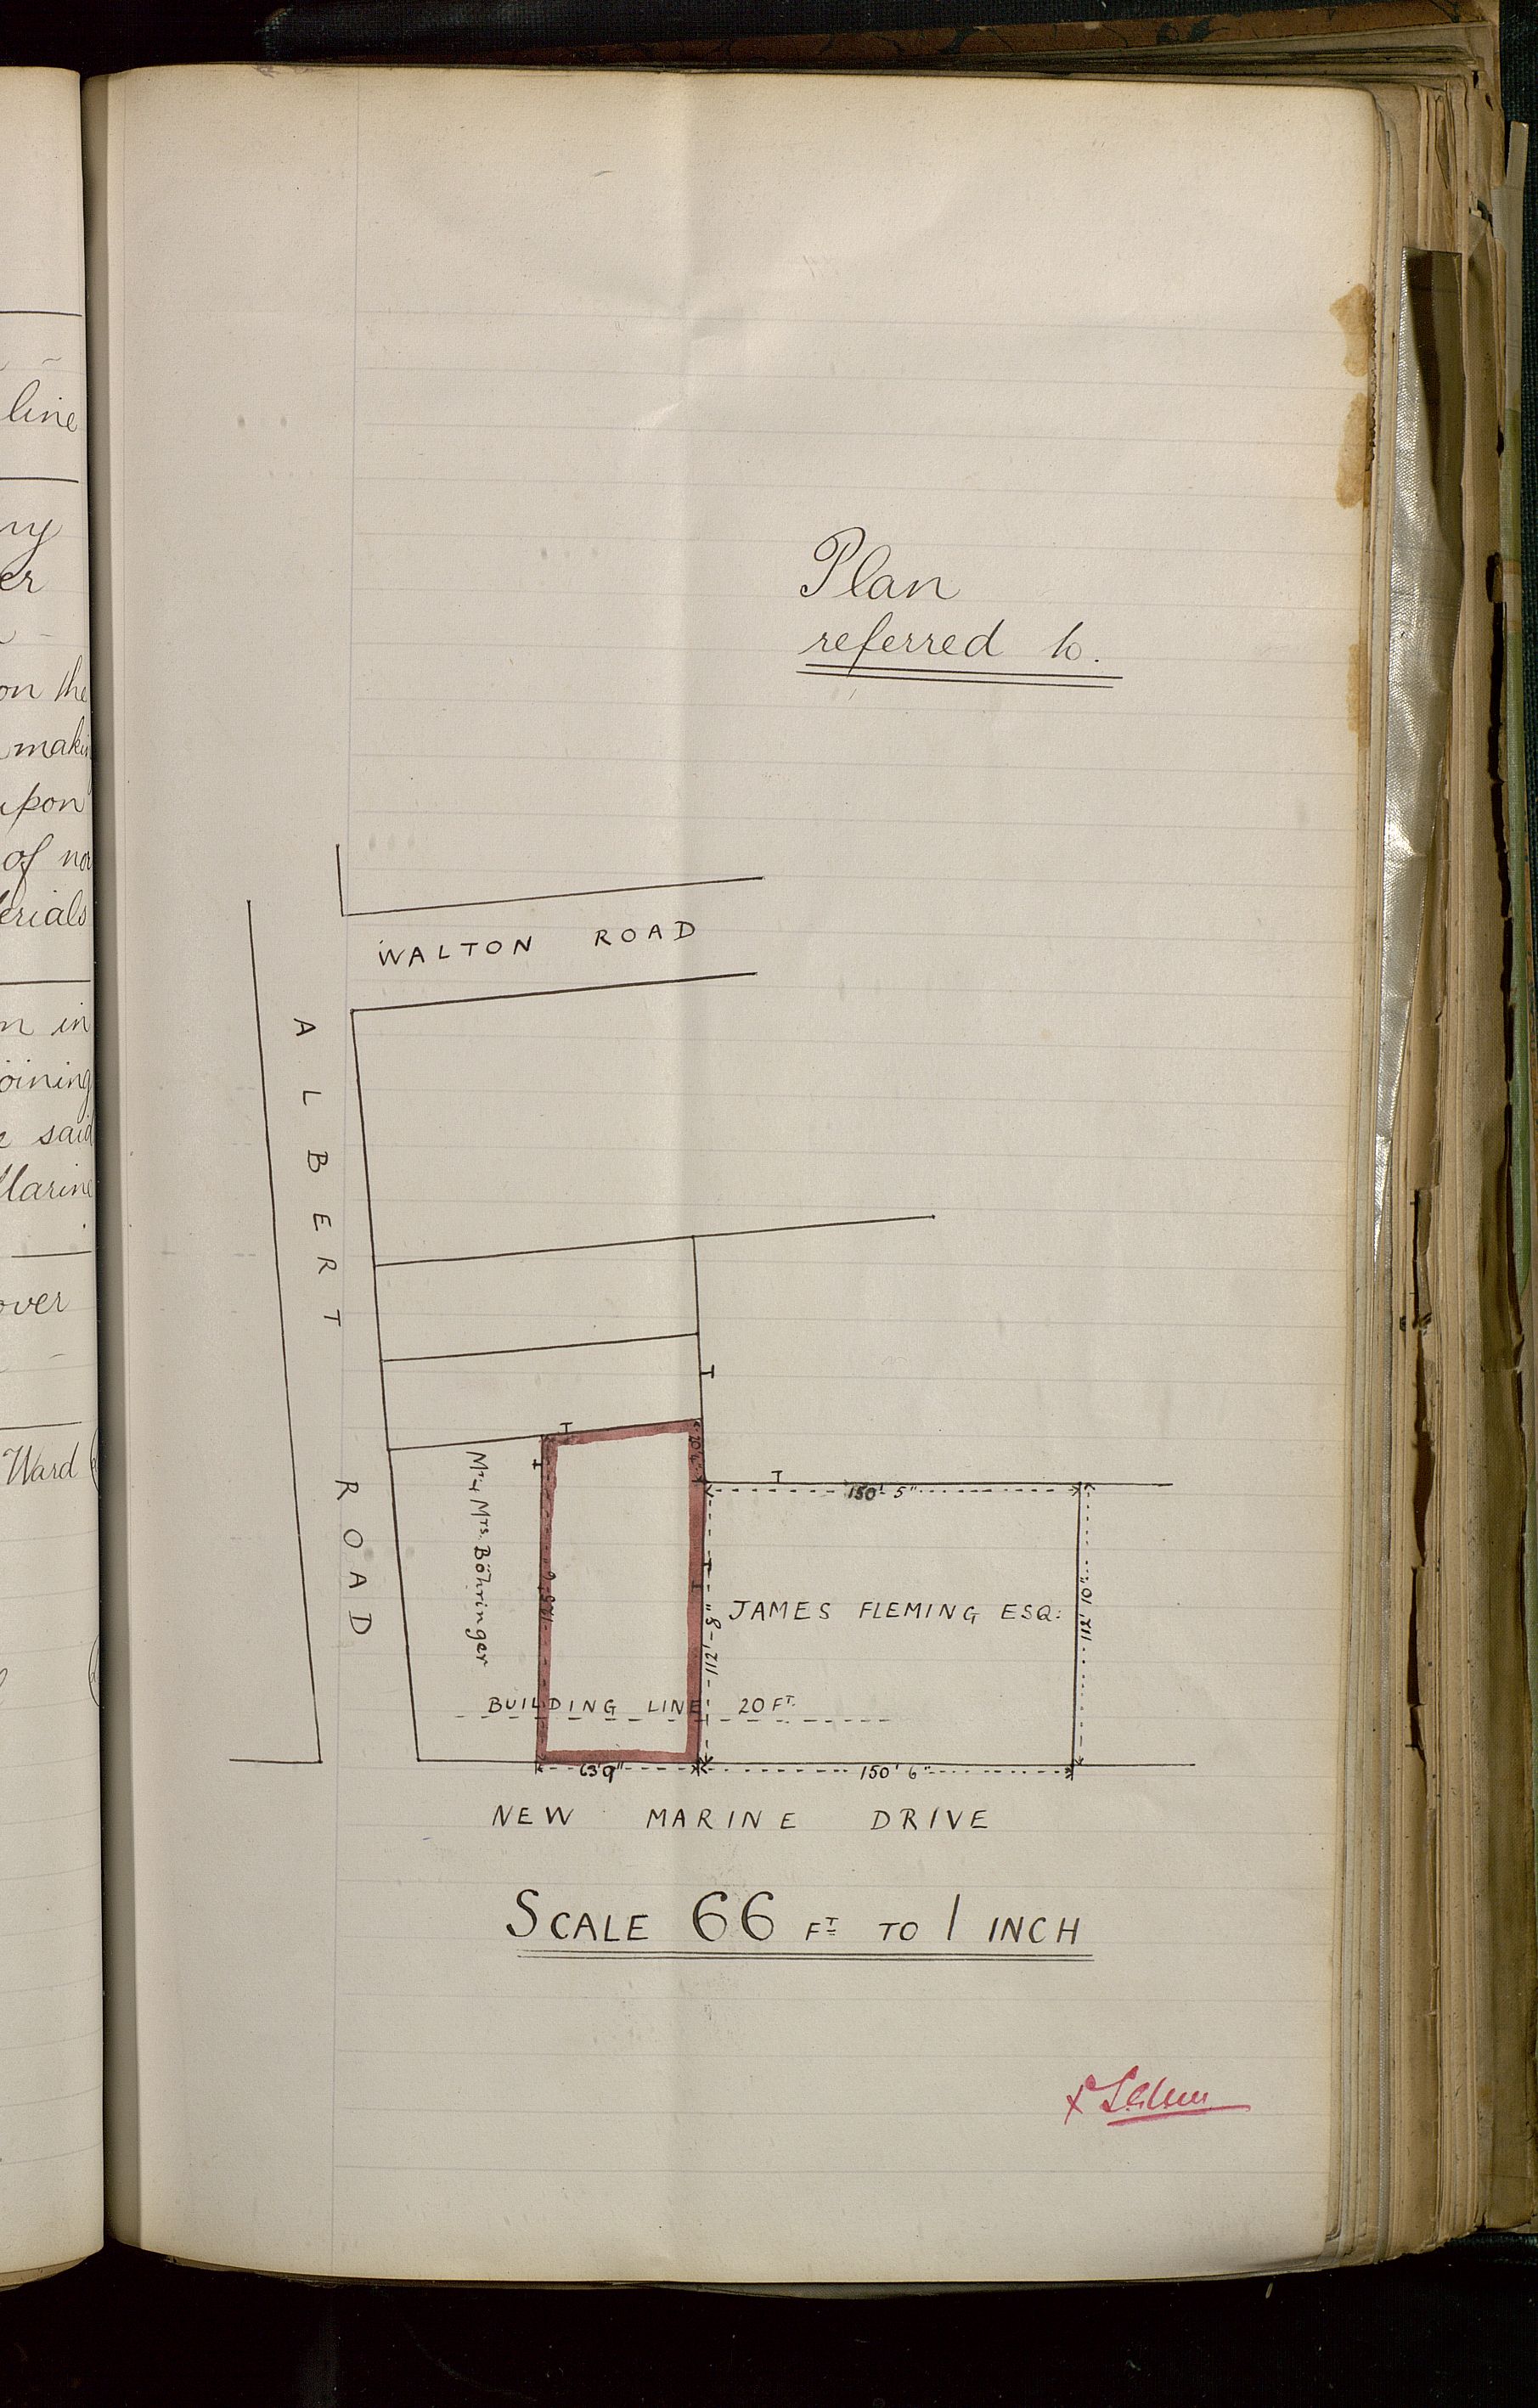 line
ny
er
on the
makin
upon
of nor
erials
n in
joining
e said
Marine
over
Ward
Plan
referred to.
WALTON ROAD
ALBERT ROAD
Mr & Mrs. Böhringer
150' 5"
112' 8"
JAMES FLEMING ESQ:
112' 10"
BUILDING LINE 20 FT.
63' 9"
150' 6"
NEW MARINE DRIVE
SCALE 66 FT TO 1 INCH